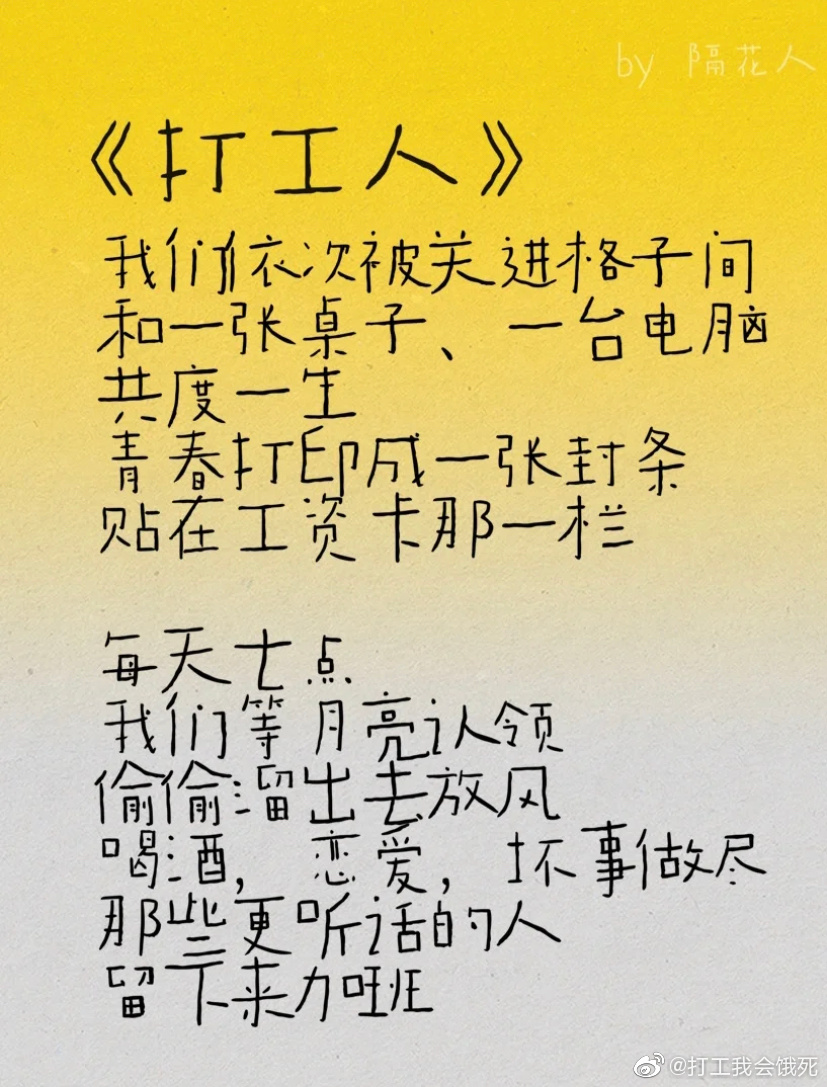 by 隔花人
《打工人》
我们依次被关进格子间
和一张桌子、一台电脑
共度一生
青春打印成一张封条
贴在工资卡那一栏
每天七点
我们等月亮认领
偷偷溜出去放风
喝酒，恋爱，坏事做尽
那些更听话的人
留下来加班
@打工我会饿死